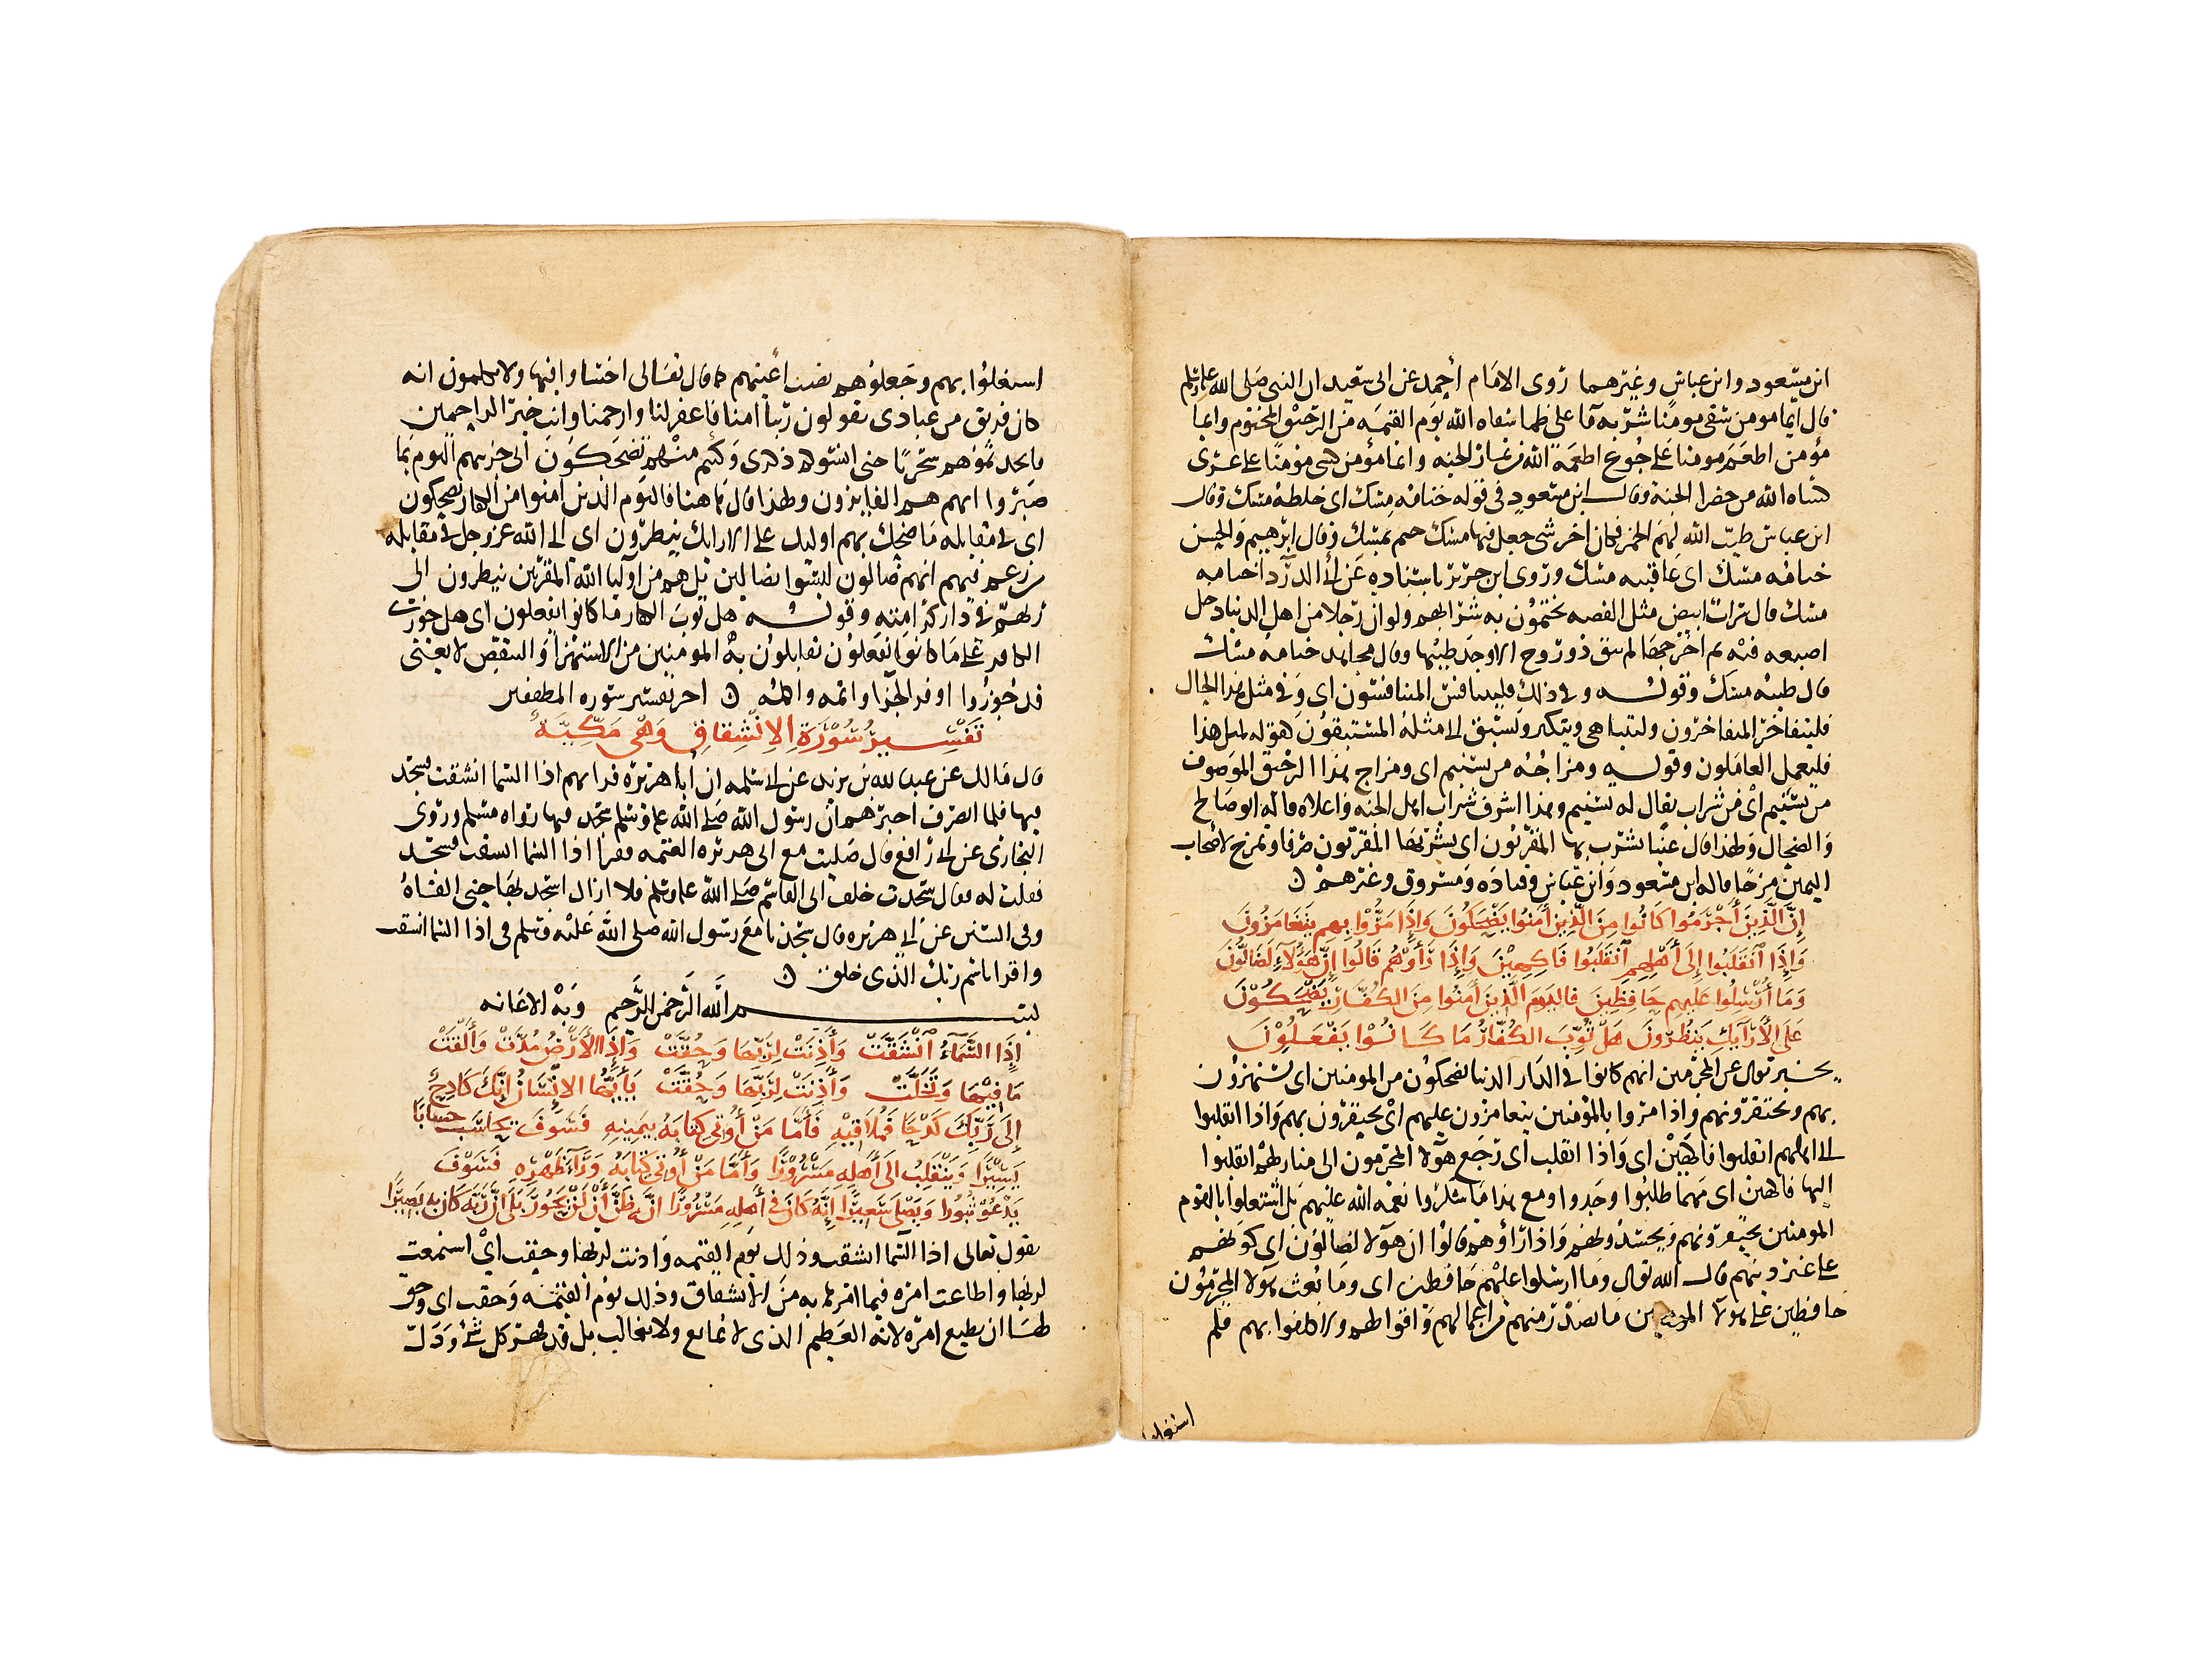 ابن مسعود وابن عباس وغيرهما روى الامام أحمد عن ابى سعيد ان النبي صلى الله عليه وسلم
قال ايما مومن سقى مومنا شربه ما على ظما سقاه الله يوم القيمه من الرحيق المختوم وايما
مؤمن اطعم مومنا على جوع اطعمه الله من ثمار الجنه وايما مؤمن كسى مؤمنا على عرى
كساه الله من خضر الجنة وقال ابن مسعود في قوله ختامه مسك اى خلطه مسك وقال
ابن عباس طيب الله لهم الخمر فكان اخر شى جعل فيها مسك ختم بمسك وقال ابرهيم والحسن
ختامه مسك اى عاقبته مسك وروى ابن جرير باسناده عن أبي الدرداء ختامه
مسك قال شراب ابيض مثل الفضه يختمون به شرابهم ولو ان رجلا من اهل الدنيا دخل
اصبعه فيه ثم اخرجها لم يبق ذو روح الا وجد طيبها وقال مجاهد ختامه مسك
قال طيبه مسك وقوله وفى ذلك فليتنافس المتنافسون اى وفى مثل هذا الحال
فليتفاخر المتفاخرون وليتباهى ويتكبر وليستبق الى مثله المستبقون كقوله لمثل هذا
فليعمل العاملون وقوله ومزاجه من تسنيم اى ومزاج هذا الرحيق الموصوف
من تسنيم أي من شراب يقال له تسنيم وهذا اشرف شراب اهل الجنه واعلاه قاله ابو صالح
والضحاك ولهذا قال عينا يشرب بها المقربون اى يشربها المقربون صرفا وتمزج لاصحاب
اليمين مزجا قاله ابن مسعود وابن عباس وقتاده ومسروق وغيرهم ن
إِنَّ الَّذِينَ أَجْرَمُوا كَانُوا مِنَ الَّذِينَ آمَنُوا يَضْحَكُونَ وَإِذَا مَرُّوا بِهِم يَتَغَامَزُونَ
وَإِذَا ٱنقَلَبُوا إِلَى أَهْلِهِم ٱنقَلَبُوا فَاكِهِينَ وَإِذَا رَأَوْهُم قَالُوا إِنَّ هَؤُلَآءِ لَضَالُّونَ
وَمَا أُرْسِلُوا عَلَيهِم حَافِظِينَ فَاليَومَ الَّذِينَ آمَنُوا مِنَ الكُفَّارِ يَضْحَكُوْنَ
عَلَى الأَرَآيِكِ يَنظُرُونَ هَلْ ثُوِّبَ الكُفَّارُ مَا كَانُوا يَفْعَلُوْنَ
يخبر تعالى عن المجرمين انهم كانوا في الدار الدنيا يضحكون من المومنين اى يستهزؤن
بهم ويحتقرونهم واذا مروا بالمؤمنين يتغامزون عليهم أى يحتقرون بهم واذا انقلبوا
الى اهلهم انقلبوا فاكهين اى واذا انقلب أى رجع هؤلا المجرمون الى منازلهم انقلبوا
اليها فاكهين اى مهما طلبوا وجدوا ومع هذا ما شكروا نعمه الله عليهم بل اشتغلوا بالقوم
المومنين يحتقرونهم ويحسدونهم واذا راؤهم قالوا ان هؤلا لضالون اى كونهم
على غير دينهم قال الله تعالى وما ارسلوا عليهم حافظين اى وما بعث هولا المجرمون
حافظين على هولا المومنين ما يصدر منهم من اعمالهم واقوالهم ولا كلفوا بهم فلم
اشتغلوا
اشتغلوا بهم وجعلوهم نصب اعينهم كما قال تعالى اخسئوا فيها ولا تكلمون انه
كان فريق من عبادى يقولون ربنا امنا فاغفر لنا وارحمنا وانت خير الراحمين
فاتخذتموهم سخريا حتى انسوكم ذكرى وكنتم منهم تضحكون انى جزيتهم اليوم بما
صبروا انهم هم الفايزون ولهذا قال هاهنا فاليوم الذين آمنوا من الكفار يضحكون
اى فى مقابله ما ضحك بهم اوليك على الارايك ينظرون اى الى الله عز وجل فى مقابله
من زعم فيهم انهم ضالون ليسوا بضالين بل هم من اوليا الله المقربين ينظرون الى
ربهم فى دار كرامته وقوله هل ثوب الكفار ما كانوا يفعلون اى هل جوزى
الكافر على ما كانوا يفعلون يقابلون به المؤمنين من الاستهزا والتنقص لا يعنى
قد جوزوا اوفر الجزا واتمه واكمله ن اخر تفسير سوره المطففين
تَفْسِيرُ سُوْرَةِ الإِنْشِقَاقِ وَهْىَ مَكِّيَّةٌ
قال مالك عن عبد الله بن يزيد عن ابى سلمه ان أبا هريره قرا بهم اذا السما انشقت فسجد
فيها فلما انصرف اخبرهم ان رسول الله صلى الله عليه وسلم سجد فيها رواه مسلم وروى
البخارى عن ابى رافع قال صليت مع ابى هريره العتمه فقرا اذا السما انشقت فسجد
فقلت له فقال سجدت خلف ابى القاسم صلى الله عليه وسلم فلا ازال اسجد بها حتى القاه
وفى السنن عن ابى هريره قال سجدنا مع رسول الله صلى الله عليه وسلم فى اذا السما انشقت
واقرا باسم ربك الذى خلق ن
بسم الله الرحمن الرحيم وبه الاعانه
إِذَا السَّمَآءُ ٱنْشَقَّتْ وَأَذِنَتْ لِرَبِّهَا وَحُقَّتْ وَإِذَا الأَرْضُ مُدَّتْ وَأَلْقَتْ
مَا فِيْهَا وَتَخَلَّتْ وَأَذِنَتْ لِرَبِّهَا وَحُقَّتْ يَأَيُّهَا الاِنْسَانُ إِنَّكَ كَادِحٌ
إِلَى رَبِّكَ كَدْحًا فَمُلَاقِيْهِ فَأَمَّا مَنْ أُوتِىَ كِتَابَهُ بِيَمِينِهِ فَسَوْفَ يُحَاسَبُ حِسَابًا
يَسِيْرًا وَيَنْقَلِبُ الَى أَهْلِهِ مَسْرُوْرًا وَأَمَّا مَنْ أُوتِىَ كِتَابَهُ وَرَآءَ ظَهْرِهِ فَسَوْفَ
يَدْعُوْ ثُبُورًا وَيَصْلَى سَعِيرًا إِنَّهُ كَانَ فِى أَهْلِهِ مَسْرُورًا انَّهُ ظَنَّ أَنْ لَنْ يَحُورَ بَلَى انَّ رَبَّهُ كَانَ بِهِ بَصِيرًا
يقول تعالى اذا السما انشقت وذلك يوم القيمه واذنت لربها وحقت اى استمعت
لربها واطاعت امره فيما امرها به من الانشقاق وذلك يوم القيمه وحقت اى وحق
لها ان تطيع امره لانه العظيم الذى لا يمانع ولا يغالب بل قد قهر كل شئ وذل